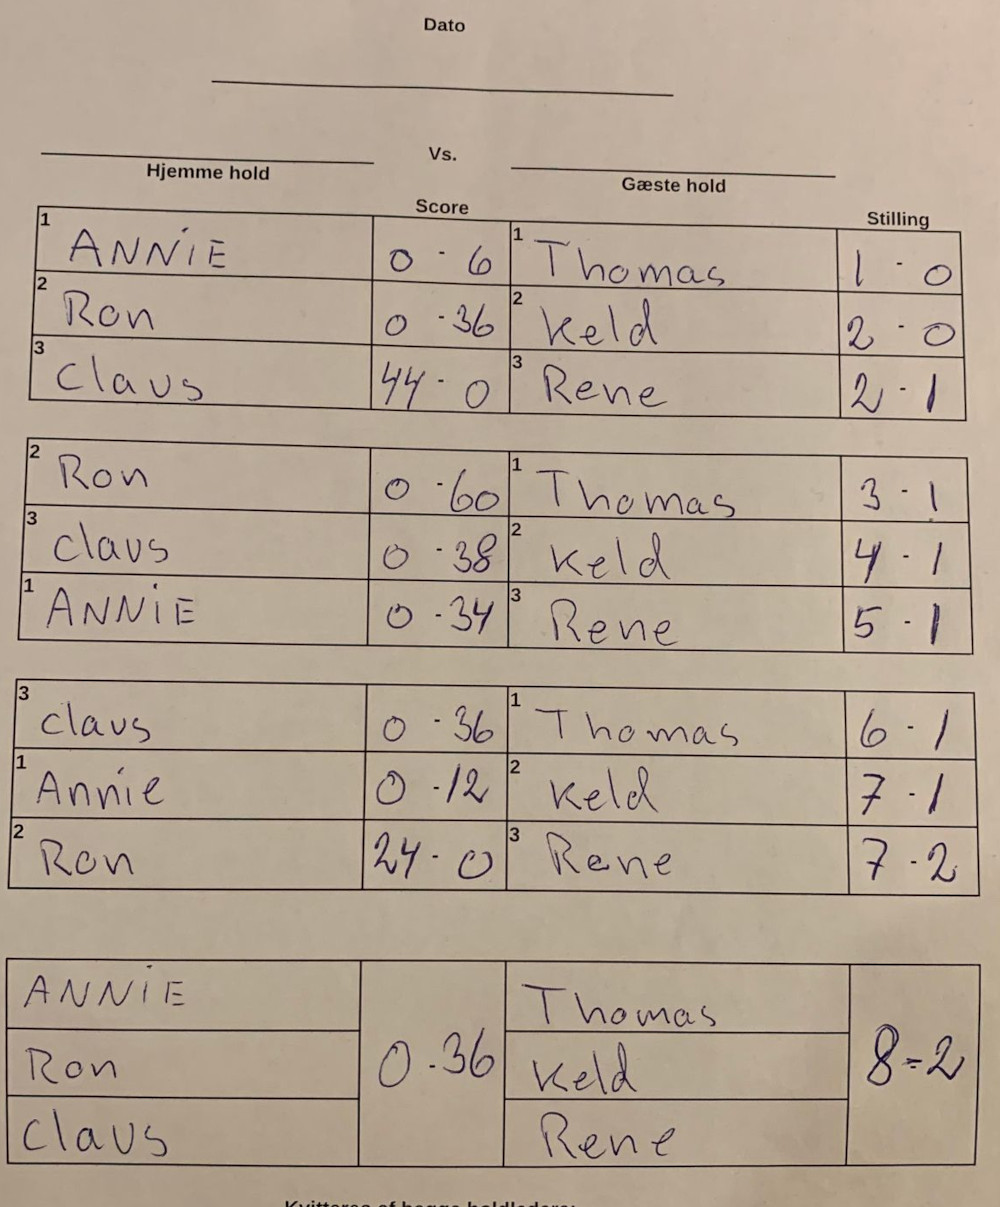 Dato
Vs.
Hjemme hold Gæste hold
Score Stilling
1 ANNIE 0 - 6 1 Thomas 1 - 0
2 Ron 0 - 36 2 Keld 2 - 0
3 Claus 44 - 0 3 Rene 2 - 1
2 Ron 0 - 60 1 Thomas 3 - 1
3 claus 0 - 38 2 Keld 4 - 1
1 ANNIE 0 - 34 3 Rene 5 - 1
3 claus 0 - 36 1 Thomas 6 - 1
1 Annie 0 - 12 2 Keld 7 - 1
2 Ron 24 - 0 3 Rene 7 - 2
ANNIE Thomas
Ron 0 - 36 Keld 8 - 2
Claus Rene